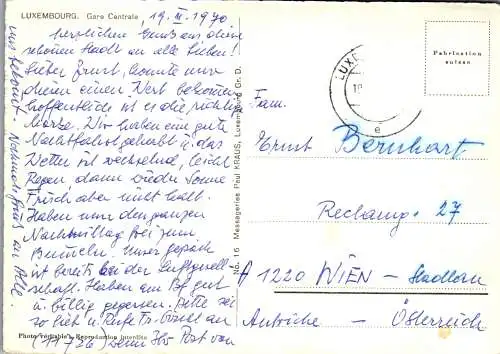 LUXEMBOURG. Gare Centrale,
19. III. 1970
herzlichen Gruß aus dieser
schönen Stadt an alle Lieben!
Lieber Ernst, konnte nur
diesen einen Wert bekommen
hoffentlich ist es die richtige
Marke. Wir haben eine gute
Nachtfahrt gehabt u. das
Wetter ist wechselnd, leicht
Regen, dann wieder Sonne
Frisch aber nicht kalt.
Haben nun den ganzen
Nachmittag frei zum
Bummeln. Unser Gepäck
ist bereits bei der Luftgesell
schaft. Haben am Bf gut
u. billig gegessen. Bitte sei
so lieb u. Rufe Fr. an
(77736) wenn Ihr Post von
uns bekommt. Nochmals Gruß an Alle.
No. 15 Messageries Paul KRAUS, Luxembourg Gr. D.
Photo véritable - Reproduction interdite
LUXE
e
Fabrication
suisse
Fam.
Ernst Bernhart
Reclamg. 27
A 1220 WIEN - Stadlau
Autriche - Österreich